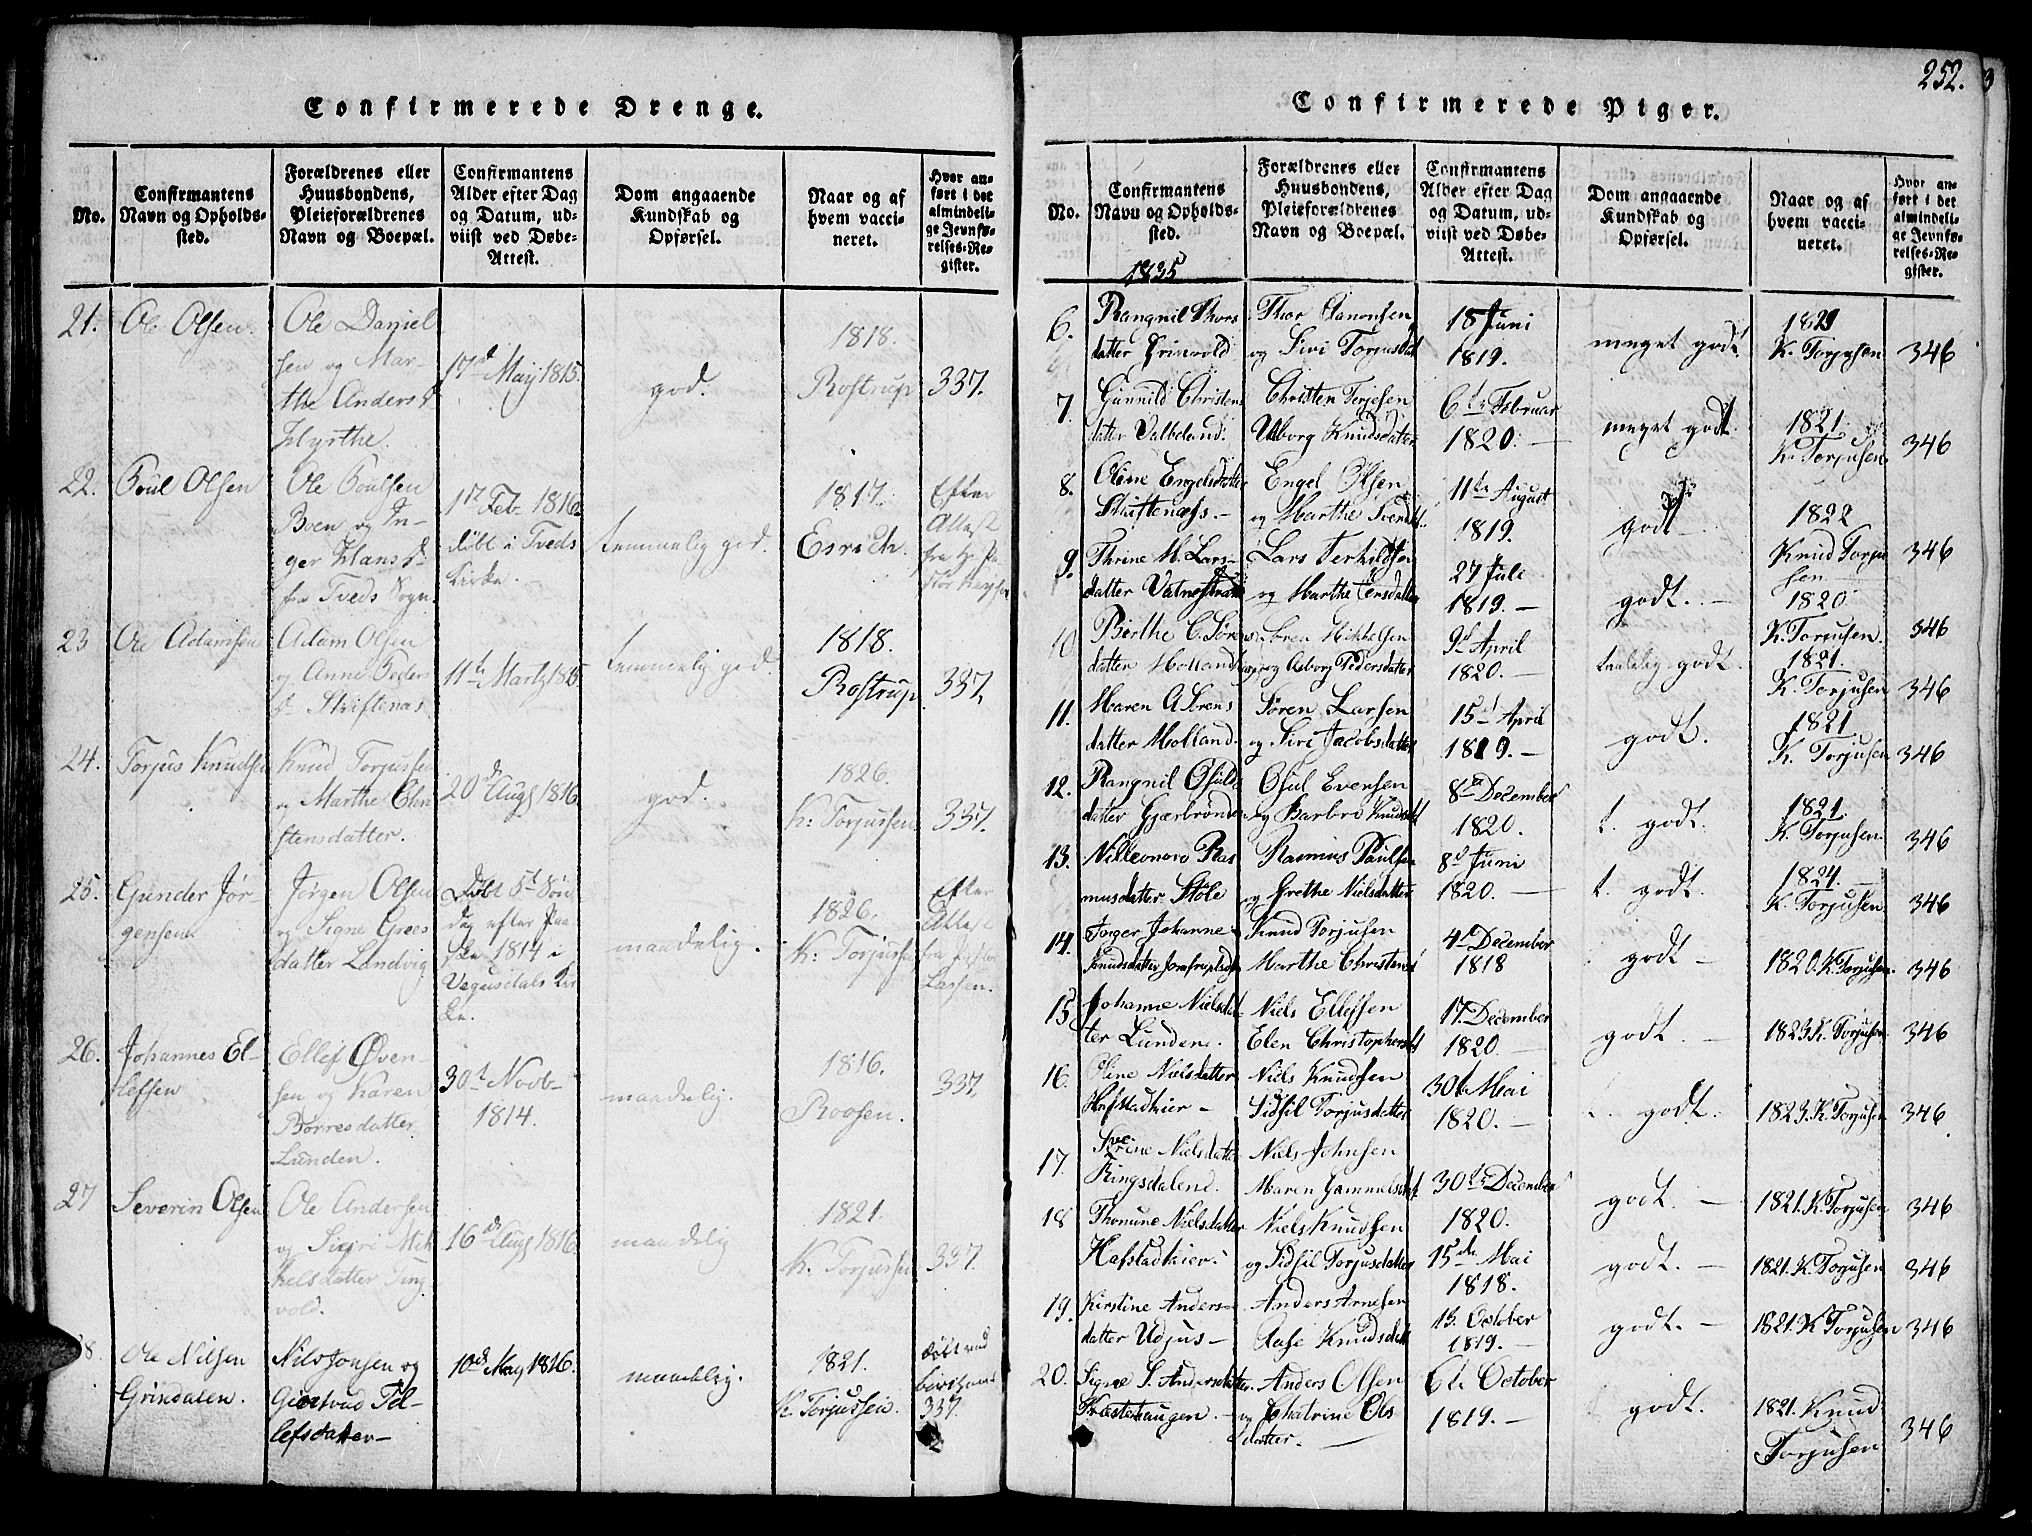 Confirmerede Drenge.
No.
Confirmantens
Navn og Opholds-
sted.
Forældrenes eller
Huusbondens,
Pleieforældrenes
Navn og Boepæl.
Confirmantens
Alder efter Dag
og Datum, ud-
viist ved Døbe-
Attest.
Dom angaaende
Kundskab og
Opførsel.
Naar og af
hvem vacci-
neret.
Hvor an-
ført i det
almindeli-
ge Jevnfø-
relses-Re-
gister.
21. Ole Olsen.
Ole Daniel
sen og Mar-
the Anders d
17d Maij 1815.
god.
1818.
Rostrup
337.
22. Poul Olsen
Ole Poulsen
Boen og In-
ger Hans d
fra Tveds Sogn.
1st Feb. 1816
døbt i Tveds
Kirke.
temmelig god.
1817.
Esrich.
Efter
Attest
fra Hr Pa
stor
23 Ole Adamsen
Adam Olsen
og Anne Peder
d Skiftenæs.
11te Martz 1815
temmelig god
1818.
Rostrup
337.
24. Torjus Knudsen
Knud Torjussen
og Marthe Chri
stensdatter.
20de Augs 1816
god.
1826.
K: Torjussen
337.
25. Gunder Jør-
gensen
Jørgen Olsen
og Signe Grees
datter Landvig
Døbt 5t Søn
dag efter Paa
ske 1814 i
Vegusdals Kir
ke.
maadelig.
1826.
K: Torjusse
Efter
Attest
fra Pastor
Lassen.
26. Johannes El-
lefsen
Ellef Øven-
sen og Karen
Børresdatter
Lunden.
30t Novb-
1814.
maadelig.
1816.
Roosen.
337.
27 Severin Olsen
Ole Andersen
og Siri Mik
kelsdatter Ting
vold.
16de Augs 1816.
maadelig
1821.
K. Torjussen
337.
28. Ole Nilsen
Grindalen.
Nils Jonsen og
Giertrud Tel-
lefsdatter-
10de May 1816.
maadelig.
1821.
K. Torjussen.
døbt ved
337.
252.
Confirmerede Piger.
No.
Confirmantens
Navn og Opholds-
sted.
Forældrenes eller
Huusbondens,
Pleieforældrenes
Navn og Boepæl.
Confirmantens
Alder efter Dag
og Datum, ud-
viist ved Døbe-
Attest.
Dom angaaende
Kundskab og
Opførsel.
Naar og af
hvem vacci-
neret.
Hvor an-
ført i det
almindeli-
ge Jevnfø-
relses-Re-
gister.
1835
6. Rangnil Thors
datter Grinvold
Thor Aanonsen
og Sivi Torjusdat
18 Juni
1819.
meget godt
1821
K. Torjusen
346
7. Gunnild Christens
datter Valbeland.
Christen Terjesen
Valborg Knudsdatter
6te Februar
1820.
meget godt
1821.
K. Torjusen
346
8. Oline Engelsdatter
Skiftenæs.-
Engel Olsen
og Marthe Svendsd
11te August
1819.
godt
1822
Knud Torju
sen
346
9. Thrine M. Lars-
datter Vatnestrand
Lars Terkildsen
og Marthe Jensdatter
27 Juli
1819.-
godt.-
1820.
K. Torjusen.
346
10. Birthe C. Sørens
datter Holland
Søren Mikkelsen
og Asborg Pedersdatter
9d April
1820.-
taalelig godt.
1821.
K. Torjusen
346
11. Maren A Sørens
datter Molland.
Søren Larsen
og Sivi Jacobsdatter
15d April
1819.-
godt.
1821
K. Torjusen
346
12. Rangnil Osulds
datter Gjærbrønden
Osul Evensen
og Barbro Knudsd
8de December
1820.
t. godt.
1821.
K. Torjusen
346
13. Nilleonore Ras
musdatter Støle
Rasmus Paulsen
og Grethe Nielsdatter
8d Juni
1820.-
t. godt.
1824.
K. Torjusen
346
14. Torger Johanne
Knudsdatter
Knud Torjusen
Marthe Christensd
4d December
1818
godt-
1820. K. Torjusen.
346
15. Johanne Nielsdat
ter Lunden.
Niels Ellefsen
Elen Christophersd
17. December
1820.-
godt.-
1823. K. Torjusen
346
16. Oline Nielsdatter
Hafstadkier-
Niels Knudsen
Sidsil Torjusdatter
30te Mai
1820.-
godt.
1823. K. Torjusen
346
17. Sirine Nielsdatter
Ringsdalend.
Niels Johnsen
Maren Gammelsdat.
30te December
1820.
godt.-
1821. K. Torjusen
346
18 Thomine Nielsdatter
Hafstadkier.
Niels Knudsen
og Sidsil Torjusdatter
15de Mai
1818.
godt.-
1821. K. Torjusen
346
19. Kirstine Anders-
datter Udjus-
Anders Arnesen
Aase Knudsdat
13. October
1819.-
godt.-
1821. K Torjusen
346
20. Signe S. Andersdatter.
Præstehaugen.-
Anders Olsen
og Chatrine Ols
datter.-
6te October
1819.-
godt.
1821. Knud
Torjusen
346